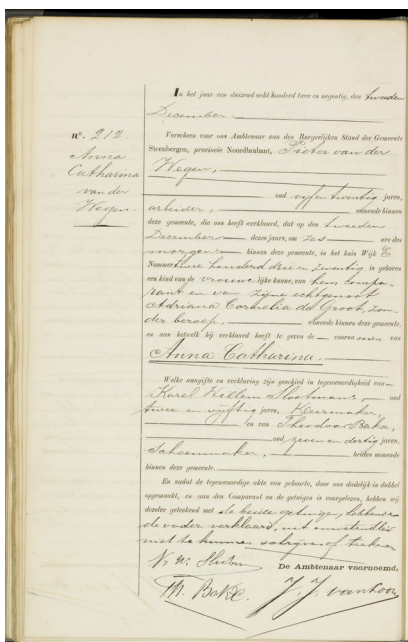 In het jaar een duizend acht honderd twee en negentig, den tweeden
December.
nº. 212.
Anna
Catharina
van der
Wegen.
Verscheen voor ons Ambtenaar van den Burgerlijken Stand der Gemeente
Steenbergen, provincie Noordbrabant, Pieter van der
Wegen,
oud vijf en twintig jaren,
arbeider, wonende binnen
deze gemeente, die ons heeft verklaard, dat op den tweeden
December dezes jaars, om zes ure des
morgens binnen deze gemeente, in het huis Wijk E
Nommer twee honderd drie en twintig, is geboren
een kind van de vrouwelijke kunne, van hem Compa-
rant en van zijne echtgenoot
Adriana Cornelia de Groot, zon
der beroep, wonende binnen deze gemeente,
en aan hetwelk hij verklaard heeft te geven de voornamen van
Anna Catharina.
Welke aangifte en verklaring zijn geschied in tegenwoordigheid van
Karel Willem Slootmans oud
twee en vijftig jaren, Kleermaker,
en van Theodoor Bakx,
oud zeven en dertig jaren,
schoenmaker, beiden wonende
binnen deze gemeente.
En nadat de tegenwoordige akte van geboorte, door ons dadelijk in dubbel
opgemaakt, en aan den Comparant en de getuigen is voorgelezen, hebben wij
dezelve geteekend met de beide getuigen, hebbende
de vader verklaard, uit
niet te kunnen schrijven of teekenen
De Ambtenaar voornoemd,
Th. Bakx.
J. J. van Loon